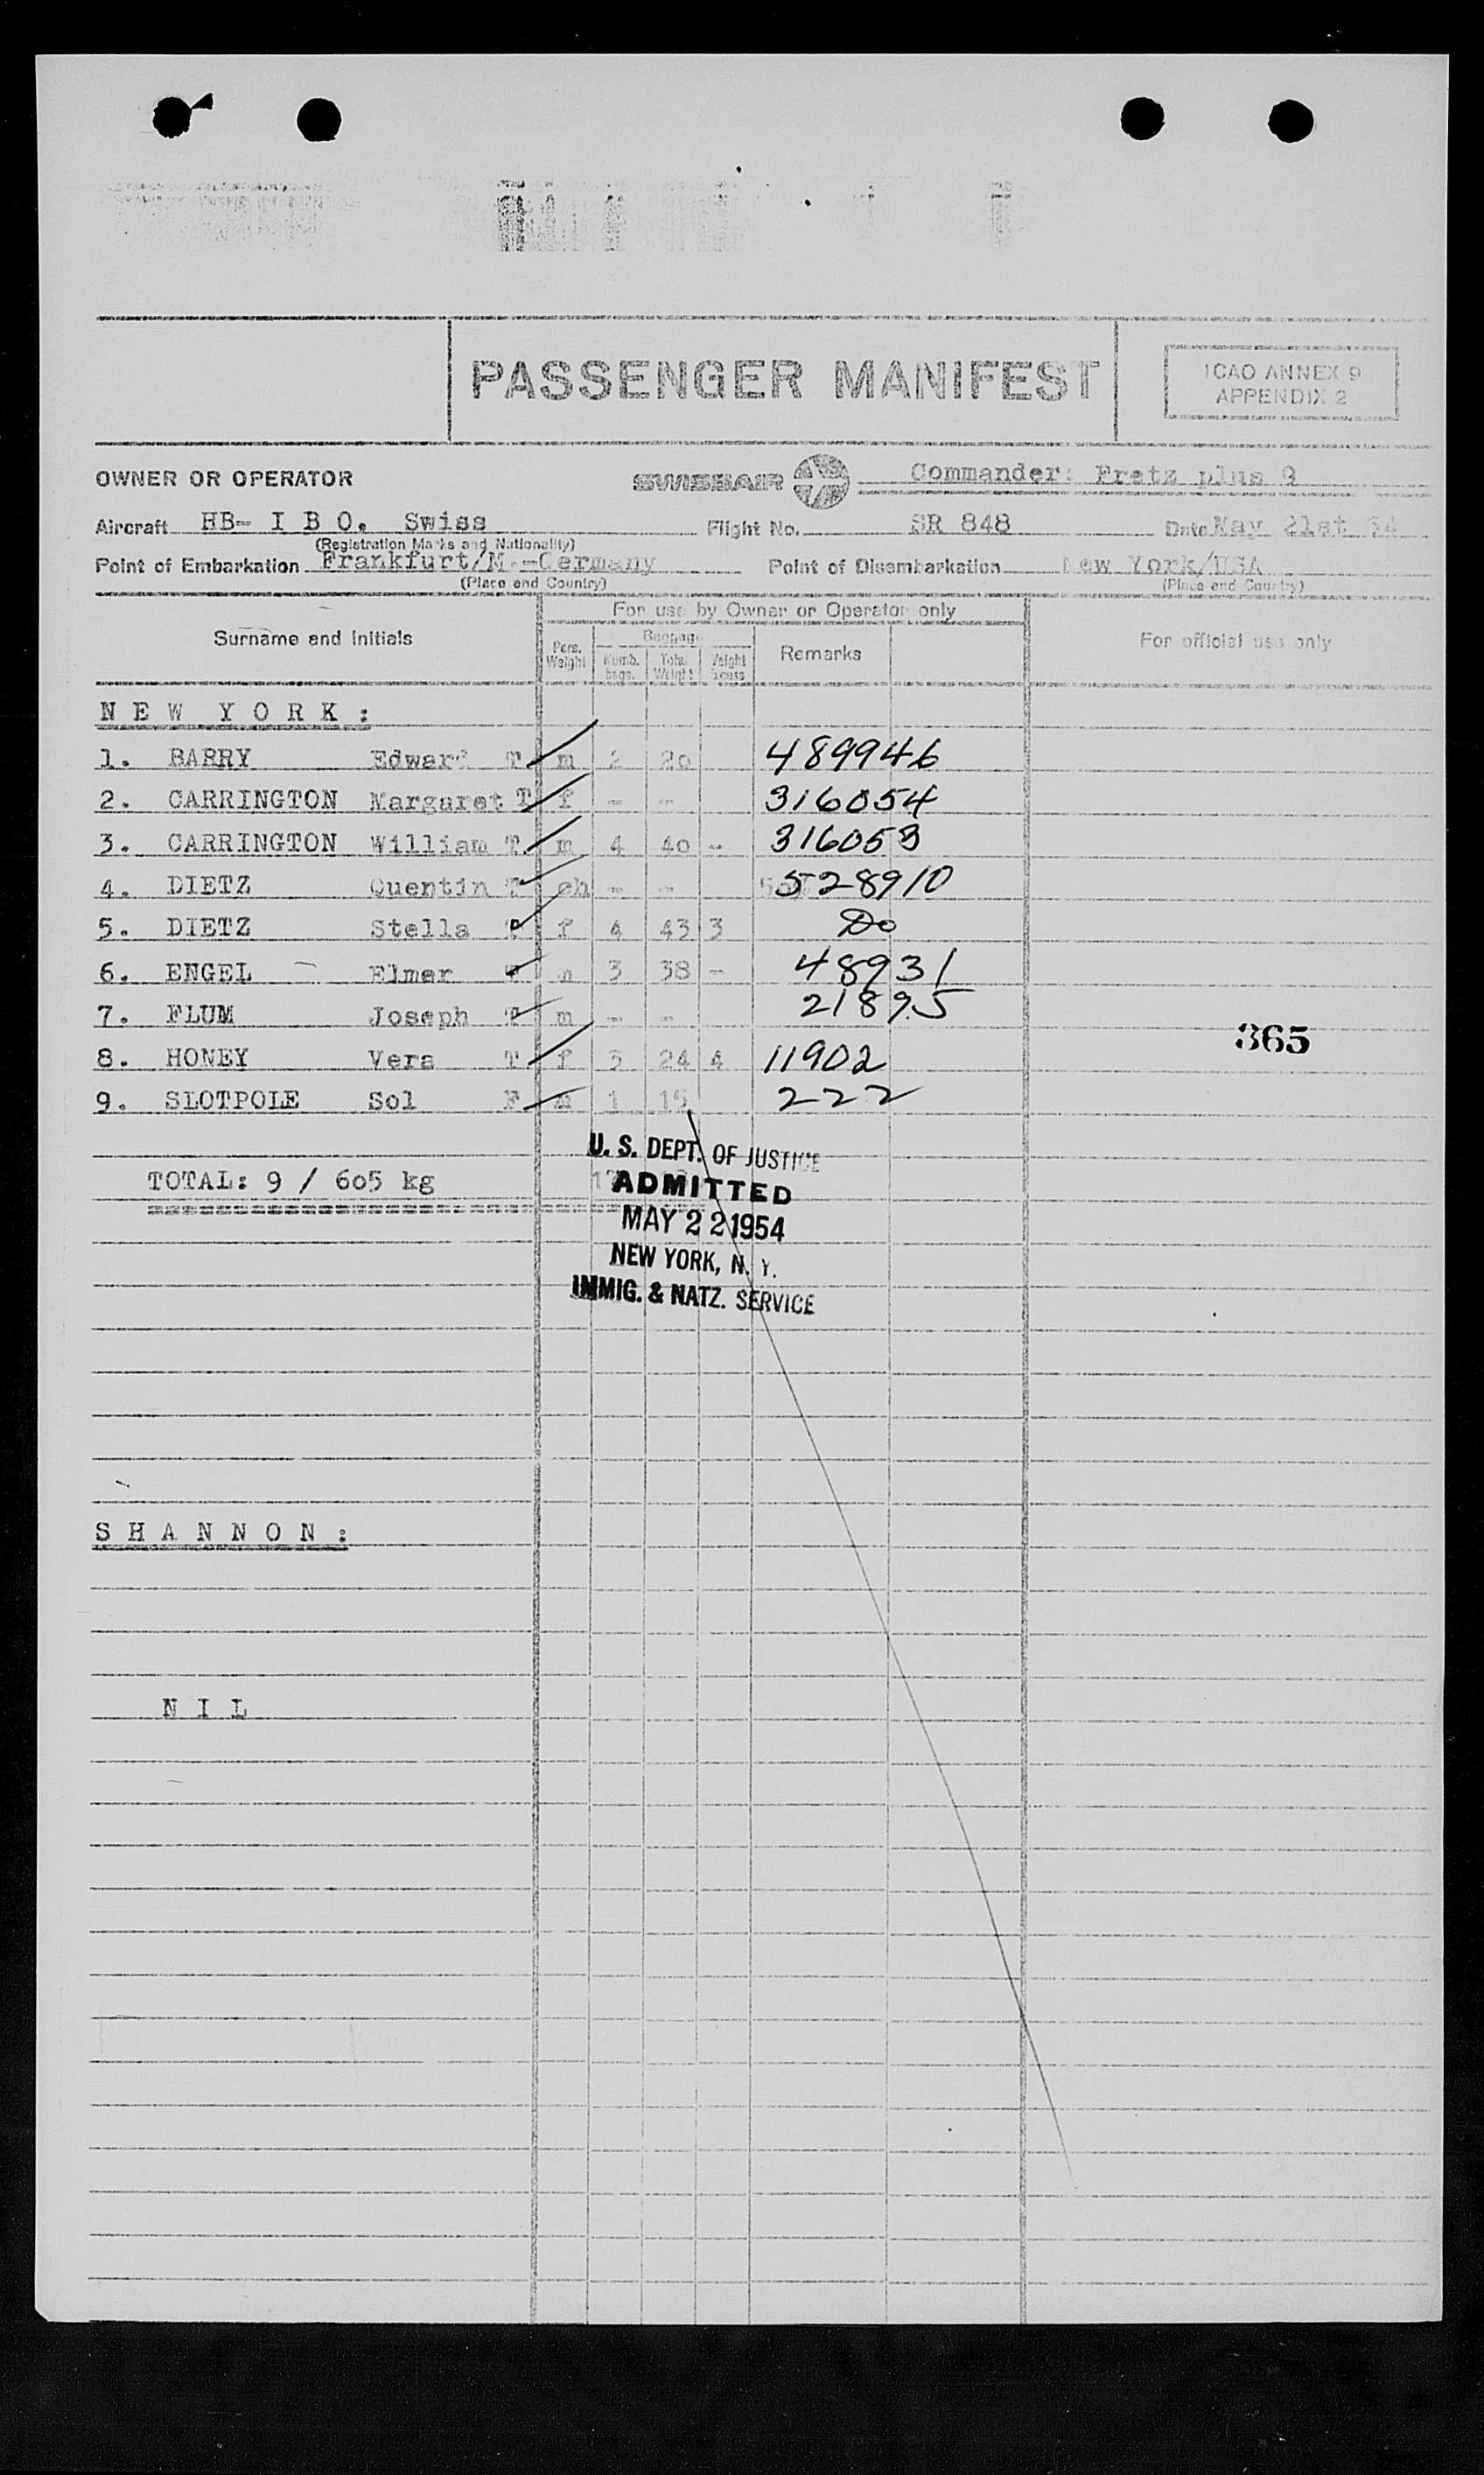 PASSENGER MANIFEST
ICAO ANNEX 9
APPENDIX 2
OWNER OR OPERATOR SWISSAIR Commander: Fretz plus 9
Aircraft HB- I B O. Swiss Flight No. SR 848 Date May 21st 54
(Registration Marks and Nationality)
Point of Embarkation Frankfurt/M.-Germany Point of Disembarkation New York/USA
(Place and Country) (Place and Country)
For use by Owner or Operator only
Surname and Initials Pers. Weight Baggage Numb. bags. Total Weight Remarks For official use only
N E W Y O R K :
1. BARRY Edward T m 2 20 489946
2. CARRINGTON Margaret T f - - 316054
3. CARRINGTON William T m 4 40 - 316053
4. DIETZ Quentin T ch - - 528910
5. DIETZ Stella T f 4 43 3 Do
6. ENGEL Elmer T m 3 38 - 48931
7. FLUM Joseph T m - - 21895
365
8. HONEY Vera T f 3 24 4 11902
9. SLOTPOLE Sol F m 1 15 222
U. S. DEPT. OF JUSTICE
TOTAL: 9 / 605 kg
ADMITTED
MAY 22 1954
NEW YORK, N. Y.
IMMIG. & NATZ. SERVICE
S H A N N O N :
N I L